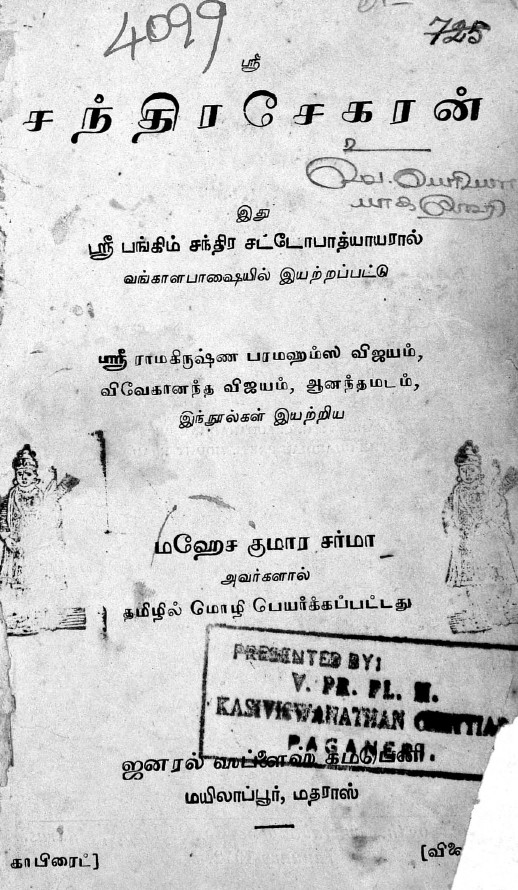 4099
725
ஸ்ரீ
சந்திரசேகரன்
வெ. பெரியா
இது
ஸ்ரீ பங்கிம் சந்திர சட்டோபாத்யாயரால்
வங்காளபாஷையில் இயற்றப்பட்டு
ஸ்ரீ ராமகிருஷ்ண பரமஹம்ஸ விஜயம்,
விவேகானந்த விஜயம், ஆனந்தமடம்,
இந்நூல்கள் இயற்றிய
மஹேச குமார சர்மா
அவர்களால்
தமிழில் மொழி பெயர்க்கப்பட்டது
PRESENTED BY:
V. PR. PL. M.
KASIVISWANATHAN CHETTIAR
PAGANERI.
ஜனரல் ஸப்ளைஸ் கம்பெனி
மயிலாப்பூர், மதராஸ்
காபிரைட்]